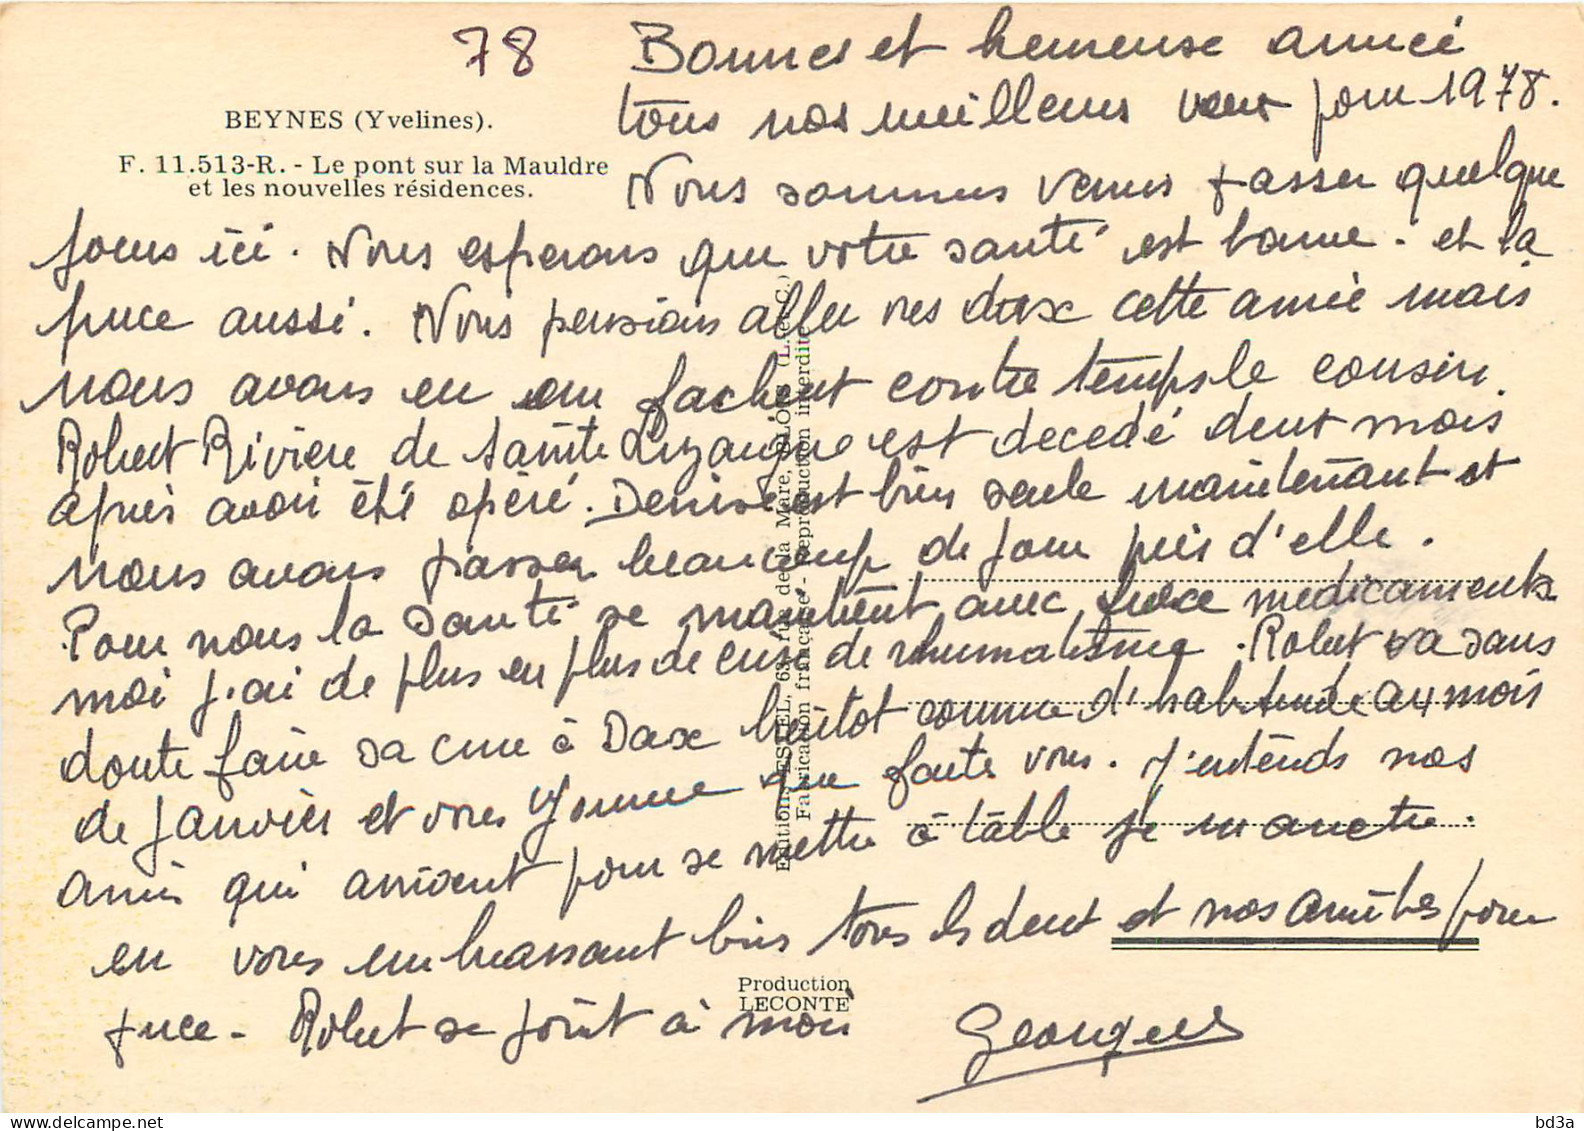 78
Bonnes et heureuse année
BEYNES (Yvelines).
tous nos meilleurs veux pour 1978.
F. 11.513-R. - Le pont sur la Mauldre
et les nouvelles résidences.
Nous sommes venus passer quelque
jours ici. Nous esperons que votre santé est bonne. et la
puce aussi. Nous pensions aller ves dax cette année mais
nous avons eu un facheut contre temps le cousin
Robert Rivière de sainte est decedé deut mois
après avoir été opéré. Denise est bien seule maintenant et
nous avons passer beaucoup de jour près d'elle.
Pour nous la santé se maintient avec force medicaments
moi j'ai de plus en plus de crise de rhumatisme. Robert va sans
doute faire sa cure à Dax bientot comme d'habitude au mois
de janvier et vous Yonne que faite vous. J'entends nos
amis qui arrivent pour se mettre à table je m'arrete.
en vous embrassant bien tous les deut et nos amitiés pour
puce - Robert se joint à moi
Georges
Editions ESTEL, 63, rue de la Mare, BLOIS (L.-et-C.)
Fabrication française - Reproduction interdite
Production
LECONTE
bd3a